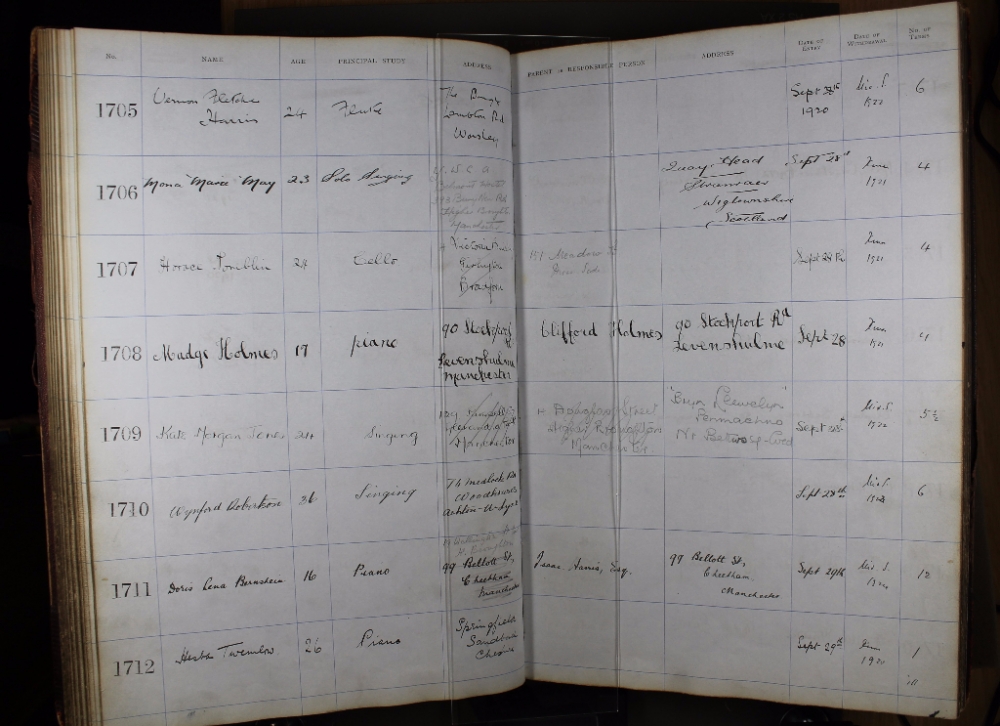 No. NAME AGE PRINCIPAL STUDY ADDRESS PARENT or RESPONSIBLE PERSON ADDRESS DATE OF ENTRY DATE OF WITHDRAWAL No. OF TERMS
1705 Vernon Fletcher Harris 24 Flute The
Rd
Worsley
Sept
1920
Mid S.
1922
6
1706 Mona Marie May 23 Solo Singing
Quay Head
Stranraer
Wigtownshire
Scotland
Sept 28th
June
1921
4
1707 Horace Tomblin 24 Cello
Sept 28
June
1921
4
1708 Madge Holmes 17 piano
90 Stockport Rd
Levenshulme
Manchester
Clifford Holmes
90 Stockport Rd
Levenshulme
Sept 28
June
1921
4
1709 Kate Morgan Jones 24 Singing
Manchester
"Bryn Llewelyn"
Penmachno
Nr Bettws-y-Coed
Sept 28th
Mid S.
1922
5½
1710 Wynford Robertson 36 Singing
Medlock Rd
Woodhouses
Ashton-U-Lyne
Sept 28th
Mid S.
6
1711 Doris Lena Bernstein 16 Piano
99 Bellott St,
Cheetham
Manchester
Isaac Harris, Esq.
99 Bellott St,
Cheetham
Manchester
Sept 29th
Mid S.
12
1712 Twemlow 26 Piano
Springfield
Sandbach
Cheshire
Sept 29th
1920
1